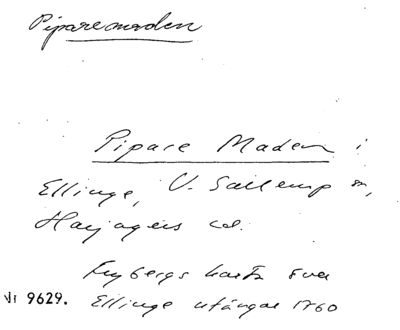 Piparemaden
Pipare Maden i
Ellinge, V. Sallerup sn,
Harjagers hd.
Frybergs karta över
Nr 9629. Ellinge utängar 1760